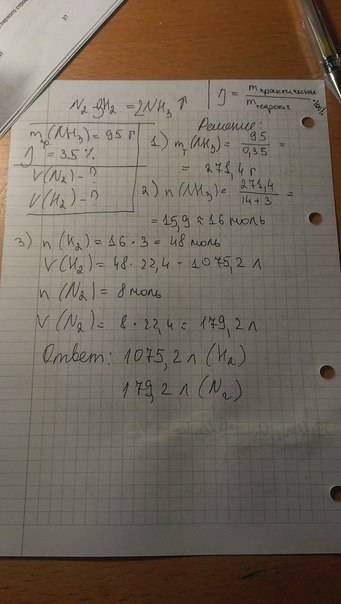 N₂ + 3H₂ = 2NH₃ ↑
η = m практичны / m теорет · 100%
mпр(NH₃) = 95 г
η = 35 %
V(N₂) - ?
V(H₂) - ?
Решение:
1) mт(NH₃) = 95 / 0,35 =
= 271,4 г
2) n(NH₃) = 271,4 / 14+3 =
= 15,9 ≈ 16 моль
3) n(H₂) = 16 · 3 = 48 моль
V(H₂) = 48 · 22,4 = 1075,2 л
n(N₂) = 8 моль
V(N₂) = 8 · 22,4 = 179,2 л
Ответ: 1075,2 л (H₂)
179,2 л (N₂)